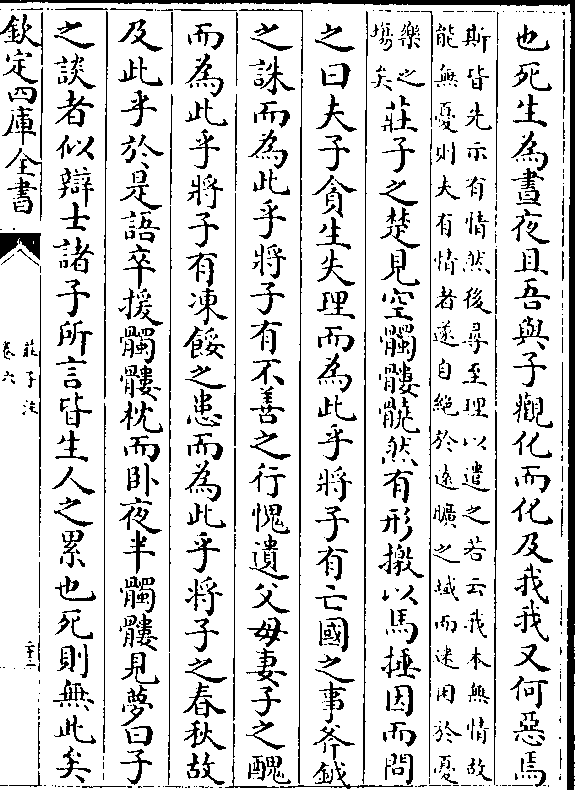 也死生為晝夜且吾與子觀化而化及我我又何惡焉
斯皆先示有情然後尋至理以遣之若云我本無情故
能無憂則夫有情者遂自絶於遠曠之域而迷困於憂
樂之
塲矣
莊子之楚見空髑髏髐然有形撽以馬捶因而問
之曰夫子貪生失理而為此乎將子有亡國之事斧鉞
之誅而為此乎將子有不善之行愧遺父母妻子之醜
而為此乎將子有凍餒之患而為此乎將子之春秋故
及此乎於是語卒援髑髏枕而卧夜半髑髏見夢曰子
之談者似辯士諸子所言皆生人之累也死則無此矣
欽定四庫全書
莊子注
卷六